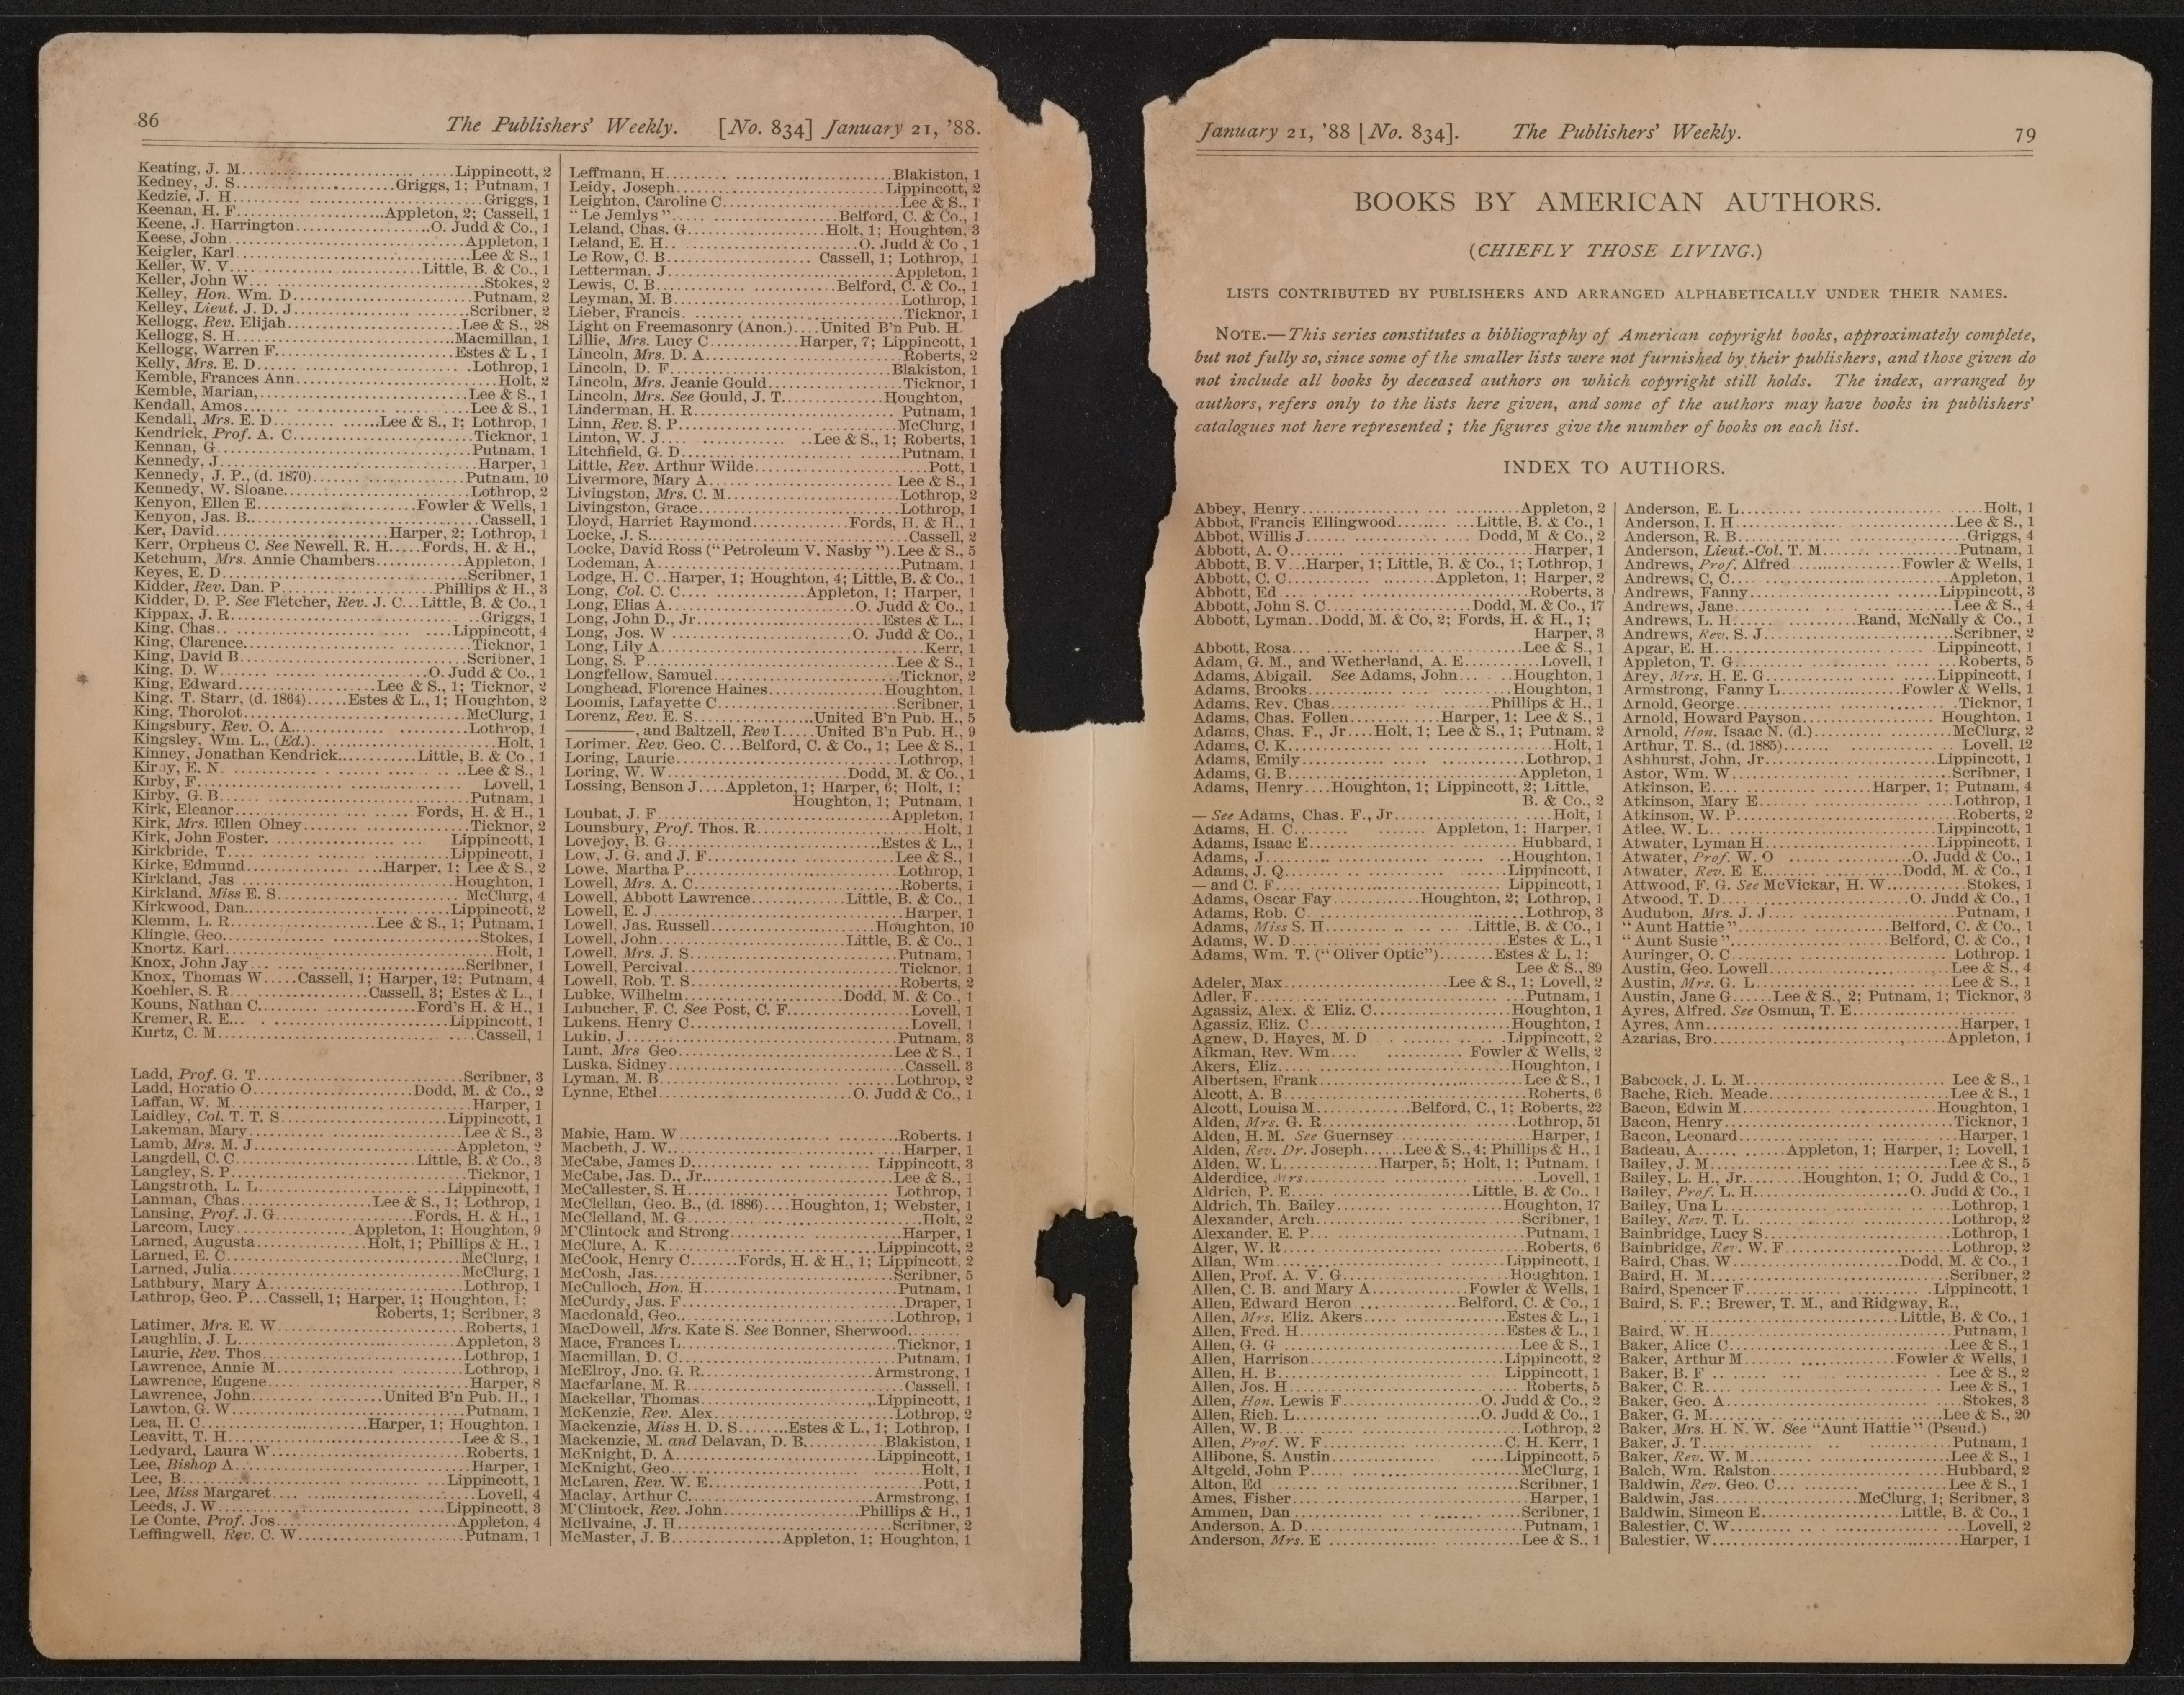 86
The Publishers' Weekly. [No. 834] January 21, '88.
Keating, J. M. Lippincott, 2
Kedney, J. S. Griggs, 1; Putnam, 1
Kedzie, J. H. Griggs, 1
Keenan, H. F. Appleton, 2; Cassell, 1
Keene, J. Harrington O. Judd & Co., 1
Keese, John Appleton, 1
Keigler, Karl Lee & S., 1
Keller, W. V. Little, B. & Co., 1
Keller, John W. Stokes, 2
Kelley, Hon. Wm. D. Putnam, 2
Kelley, Lieut. J. D. J. Scribner, 2
Kellogg, Rev. Elijah Lee & S., 28
Kellogg, S. H. Macmillan, 1
Kellogg, Warren F. Estes & L., 1
Kelly, Mrs. E. D. Lothrop, 1
Kemble, Frances Ann Holt, 2
Kemble, Marian, Lee & S., 1
Kendall, Amos Lee & S., 1
Kendall, Mrs. E. D. Lee & S., 1; Lothrop, 1
Kendrick, Prof. A. C. Ticknor, 1
Kennan, G. Putnam, 1
Kennedy, J. Harper, 1
Kennedy, J. P., (d. 1870) Putnam, 10
Kennedy, W. Sloane Lothrop, 2
Kenyon, Ellen E. Fowler & Wells, 1
Kenyon, Jas. B. Cassell, 1
Ker, David Harper, 2; Lothrop, 1
Kerr, Orpheus C. See Newell, R. H. Fords, H. & H.,
Ketchum, Mrs. Annie Chambers Appleton, 1
Keyes, E. D. Scribner, 1
Kidder, Rev. Dan. P. Phillips & H., 3
Kidder, D. P. See Fletcher, Rev. J. C. Little, B. & Co., 1
Kippax, J. R. Griggs, 1
King, Chas. Lippincott, 4
King, Clarence Ticknor, 1
King, David B. Scribner, 1
King, D. W. O. Judd & Co., 1
King, Edward Lee & S., 1; Ticknor, 2
King, T. Starr, (d. 1864) Estes & L., 1; Houghton, 2
King, Thorolot McClurg, 1
Kingsbury, Rev. O. A. Lothrop, 1
Kingsley, Wm. L., (Ed.) Holt, 1
Kinney, Jonathan Kendrick Little, B. & Co., 1
Kirby, E. N. Lee & S., 1
Kirby, F. Lovell, 1
Kirby, G. B. Putnam, 1
Kirk, Eleanor Fords, H. & H., 1
Kirk, Mrs. Ellen Olney Ticknor, 2
Kirk, John Foster. Lippincott, 1
Kirkbride, T. Lippincott, 1
Kirke, Edmund Harper, 1; Lee & S., 2
Kirkland, Jas Houghton, 1
Kirkland, Miss E. S. McClurg, 4
Kirkwood, Dan. Lippincott, 2
Klemm, L. R. Lee & S., 1; Putnam, 1
Klingle, Geo. Stokes, 1
Knortz, Karl Holt, 1
Knox, John Jay Scribner, 1
Knox, Thomas W. Cassell, 1; Harper, 12; Putnam, 4
Koehler, S. R. Cassell, 3; Estes & L., 1
Kouns, Nathan C. Ford's H. & H., 1
Kremer, R. E. Lippincott, 1
Kurtz, C. M. Cassell, 1
Ladd, Prof. G. T. Scribner, 3
Ladd, Horatio O. Dodd, M. & Co., 2
Laffan, W. M. Harper, 1
Laidley, Col. T. T. S. Lippincott, 1
Lakeman, Mary Lee & S., 3
Lamb, Mrs. M. J. Appleton, 2
Langdell, C. C. Little, B. & Co., 3
Langley, S. P. Ticknor, 1
Langstroth, L. L. Lippincott, 1
Lanman, Chas. Lee & S., 1; Lothrop, 1
Lansing, Prof. J. G. Fords, H. & H., 1
Larcom, Lucy Appleton, 1; Houghton, 9
Larned, Augusta Holt, 1; Phillips & H., 1
Larned, E. C. McClurg, 1
Larned, Julia McClurg, 1
Lathbury, Mary A. Lothrop, 1
Lathrop, Geo. P. Cassell, 1; Harper, 1; Houghton, 1;
Roberts, 1; Scribner, 3
Latimer, Mrs. E. W. Roberts, 1
Laughlin, J. L. Appleton, 3
Laurie, Rev. Thos. Lothrop, 1
Lawrence, Annie M. Lothrop, 1
Lawrence, Eugene Harper, 8
Lawrence, John United B'n Pub. H., 1
Lawton, G. W. Putnam, 1
Lea, H. C. Harper, 1; Houghton, 1
Leavitt, T. H. Lee & S., 1
Ledyard, Laura W. Roberts, 1
Lee, Bishop A. Harper, 1
Lee, B. Lippincott, 1
Lee, Miss Margaret Lovell, 4
Leeds, J. W. Lippincott, 3
Le Conte, Prof. Jos. Appleton, 4
Leffingwell, Rev. C. W. Putnam, 1
Leffmann, H. Blakiston, 1
Leidy, Joseph Lippincott, 2
Leighton, Caroline C. Lee & S., 1
"Le Jemlys" Belford, C. & Co., 1
Leland, Chas. G. Holt, 1; Houghton, 3
Leland, E. H. O. Judd & Co., 1
Le Row, C. B. Cassell, 1; Lothrop, 1
Letterman, J. Appleton, 1
Lewis, C. B. Belford, C. & Co., 1
Leyman, M. B. Lothrop, 1
Lieber, Francis. Ticknor, 1
Light on Freemasonry (Anon.) United B'n Pub. H.
Lillie, Mrs. Lucy C. Harper, 7; Lippincott, 1
Lincoln, Mrs. D. A. Roberts, 2
Lincoln, D. F. Blakiston, 1
Lincoln, Mrs. Jeanie Gould Ticknor, 1
Lincoln, Mrs. See Gould, J. T. Houghton,
Linderman, H. R. Putnam, 1
Linn, Rev. S. P. McClurg, 1
Linton, W. J. Lee & S., 1; Roberts, 1
Litchfield, G. D. Putnam, 1
Little, Rev. Arthur Wilde Pott, 1
Livermore, Mary A. Lee & S., 1
Livingston, Mrs. C. M. Lothrop, 2
Livingston, Grace Lothrop, 1
Lloyd, Harriet Raymond Fords, H. & H., 1
Locke, J. S. Cassell, 2
Locke, David Ross ("Petroleum V. Nasby"). Lee & S., 5
Lodeman, A. Putnam, 1
Lodge, H. C. Harper, 1; Houghton, 4; Little, B. & Co., 1
Long, Col. C. C. Appleton, 1; Harper, 1
Long, Elias A. O. Judd & Co., 1
Long, John D., Jr. Estes & L., 1
Long, Jos. W. O. Judd & Co., 1
Long, Lily A. Kerr, 1
Long, S. P. Lee & S., 1
Longfellow, Samuel Ticknor, 2
Longhead, Florence Haines Houghton, 1
Loomis, Lafayette C. Scribner, 1
Lorenz, Rev. E. S. United B'n Pub. H., 5
———, and Baltzell, Rev I. United B'n Pub. H., 9
Lorimer, Rev. Geo. C. Belford, C. & Co., 1; Lee & S., 1
Loring, Laurie Lothrop, 1
Loring, W. W. Dodd, M. & Co., 1
Lossing, Benson J. Appleton, 1; Harper, 6; Holt, 1;
Houghton, 1; Putnam, 1
Loubat, J. F. Appleton, 1
Lounsbury, Prof. Thos. R. Holt, 1
Lovejoy, B. G. Estes & L., 1
Low, J. G. and J. F. Lee & S., 1
Lowe, Martha P. Lothrop, 1
Lowell, Mrs. A. C. Roberts, 1
Lowell, Abbott Lawrence Little, B. & Co., 1
Lowell, E. J. Harper, 1
Lowell, Jas. Russell Houghton, 10
Lowell, John Little, B. & Co., 1
Lowell, Mrs. J. S. Putnam, 1
Lowell, Percival Ticknor, 1
Lowell, Rob. T. S. Roberts, 2
Lubke, Wilhelm Dodd, M. & Co., 1
Lubucher, F. C. See Post, C. F. Lovell, 1
Lukens, Henry C. Lovell, 1
Lukin, J. Putnam, 3
Lunt, Mrs Geo. Lee & S., 1
Luska, Sidney Cassell. 3
Lyman, M. B. Lothrop, 2
Lynne, Ethel O. Judd & Co., 1
Mabie, Ham. W. Roberts. 1
Macbeth, J. W. Harper, 1
McCabe, James D. Lippincott, 3
McCabe, Jas. D., Jr. Lee & S., 1
McCallester, S. H. Lothrop, 1
McClellan, Geo. B., (d. 1886) Houghton, 1; Webster, 1
McClelland, M. G. Holt, 2
M'Clintock and Strong Harper, 1
McClure, A. K. Lippincott, 2
McCook, Henry C. Fords, H. & H., 1; Lippincott. 2
McCosh, Jas. Scribner, 5
McCulloch, Hon. H. Putnam, 1
McCurdy, Jas. F. Draper, 1
Macdonald, Geo. Lothrop, 1
MacDowell, Mrs. Kate S. See Bonner, Sherwood
Mace, Frances L. Ticknor, 1
Macmillan, D. C. Putnam, 1
McElroy, Jno. G. R. Armstrong, 1
Macfarlane, M. R. Cassell, 1
Mackellar, Thomas Lippincott, 1
McKenzie, Rev. Alex. Lothrop, 2
Mackenzie, Miss H. D. S. Estes & L., 1; Lothrop, 1
Mackenzie, M. and Delavan, D. B. Blakiston, 1
McKnight, D. A. Lippincott, 1
McKnight, Geo. Holt, 1
McLaren, Rev. W. E. Pott, 1
Maclay, Arthur C. Armstrong, 1
M'Clintock, Rev. John Phillips & H., 1
McIlvaine, J. H. Scribner, 2
McMaster, J. B. Appleton, 1; Houghton, 1
January 21, '88 [No. 834]. The Publishers' Weekly. 79
BOOKS BY AMERICAN AUTHORS.
(CHIEFLY THOSE LIVING.)
LISTS CONTRIBUTED BY PUBLISHERS AND ARRANGED ALPHABETICALLY UNDER THEIR NAMES.
NOTE.—This series constitutes a bibliography of American copyright books, approximately complete,
but not fully so, since some of the smaller lists were not furnished by their publishers, and those given do
not include all books by deceased authors on which copyright still holds. The index, arranged by
authors, refers only to the lists here given, and some of the authors may have books in publishers'
catalogues not here represented; the figures give the number of books on each list.
INDEX TO AUTHORS.
Abbey, Henry Appleton, 2
Abbot, Francis Ellingwood Little, B. & Co., 1
Abbot, Willis J. Dodd, M & Co., 2
Abbott, A. O. Harper, 1
Abbott, B. V. Harper, 1; Little, B. & Co., 1; Lothrop, 1
Abbott, C. C. Appleton, 1; Harper, 2
Abbott, Ed Roberts, 3
Abbott, John S. C. Dodd, M. & Co., 17
Abbott, Lyman Dodd, M. & Co, 2; Fords, H. & H., 1;
Harper, 3
Abbott, Rosa Lee & S., 1
Adam, G. M., and Wetherland, A. E. Lovell, 1
Adams, Abigail. See Adams, John Houghton, 1
Adams, Brooks Houghton, 1
Adams, Rev. Chas. Phillips & H., 1
Adams, Chas. Follen Harper, 1; Lee & S., 1
Adams, Chas. F., Jr. Holt, 1; Lee & S., 1; Putnam, 2
Adams, C. K. Holt, 1
Adams, Emily Lothrop, 1
Adams, G. B. Appleton, 1
Adams, Henry Houghton, 1; Lippincott, 2; Little,
B. & Co., 2
— See Adams, Chas. F., Jr. Holt, 1
Adams, H. C. Appleton, 1; Harper, 1
Adams, Isaac E. Hubbard, 1
Adams, J. Houghton, 1
Adams, J. Q. Lippincott, 1
— and C. F. Lippincott, 1
Adams, Oscar Fay Houghton, 2; Lothrop, 1
Adams, Rob. C. Lothrop, 3
Adams, Miss S. H. Little, B. & Co., 1
Adams, W. D. Estes & L., 1
Adams, Wm. T. ("Oliver Optic") Estes & L, 1;
Lee & S., 89
Adeler, Max Lee & S., 1; Lovell, 2
Adler, F. Putnam, 1
Agassiz, Alex. & Eliz. C. Houghton, 1
Agassiz, Eliz. C. Houghton, 1
Agnew, D. Hayes, M. D. Lippincott, 2
Aikman, Rev. Wm. Fowler & Wells, 2
Akers, Eliz. Houghton, 1
Albertsen, Frank Lee & S., 1
Alcott, A. B. Roberts, 6
Alcott, Louisa M. Belford, C., 1; Roberts, 22
Alden, Mrs. G. R. Lothrop, 51
Alden, H. M. See Guernsey Harper, 1
Alden, Rev. Dr. Joseph Lee & S., 4; Phillips & H., 1
Alden, W. L. Harper, 5; Holt, 1; Putnam, 1
Alderdice, Mrs. Lovell, 1
Aldrich, P. E. Little, B. & Co., 1
Aldrich, Th. Bailey Houghton, 17
Alexander, Arch. Scribner, 1
Alexander, E. P. Putnam, 1
Alger, W. R. Roberts, 6
Allan, Wm. Lippincott, 1
Allen, Prof. A. V. G. Houghton, 1
Allen, C. B. and Mary A. Fowler & Wells, 1
Allen, Edward Heron Belford, C. & Co., 1
Allen, Mrs. Eliz. Akers Estes & L., 1
Allen, Fred. H. Estes & L., 1
Allen, G. G. Lee & S., 1
Allen, Harrison Lippincott, 2
Allen, H. B. Lippincott, 1
Allen, Jos. H. Roberts, 5
Allen, Hon. Lewis F. O. Judd & Co., 2
Allen, Rich. L. O. Judd & Co., 1
Allen, W. B. Lothrop, 2
Allen, Prof. W. F. C. H. Kerr, 1
Allibone, S. Austin Lippincott, 5
Altgeld, John P. McClurg, 1
Alton, Ed Scribner, 1
Ames, Fisher Harper, 1
Ammen, Dan Scribner, 1
Anderson, A. D. Putnam, 1
Anderson, Mrs. E Lee & S., 1
Anderson, E. L. Holt, 1
Anderson, I. H. Lee & S., 1
Anderson, R. B. Griggs, 4
Anderson, Lieut.-Col. T. M. Putnam, 1
Andrews, Prof. Alfred Fowler & Wells, 1
Andrews, C, C. Appleton, 1
Andrews, Fanny Lippincott, 3
Andrews, Jane Lee & S., 4
Andrews, L. H. Rand, McNally & Co., 1
Andrews, Rev. S. J. Scribner, 2
Apgar, E. H. Lippincott, 1
Appleton, T. G. Roberts, 5
Arey, Mrs. H. E. G. Lippincott, 1
Armstrong, Fanny L. Fowler & Wells, 1
Arnold, George Ticknor, 1
Arnold, Howard Payson Houghton, 1
Arnold, Hon. Isaac N. (d.) McClurg, 2
Arthur, T. S., (d. 1885) Lovell, 12
Ashhurst, John, Jr. Lippincott, 1
Astor, Wm. W. Scribner, 1
Atkinson, E. Harper, 1; Putnam, 4
Atkinson, Mary E. Lothrop, 1
Atkinson, W. P. Roberts, 2
Atlee, W. L. Lippincott, 1
Atwater, Lyman H. Lippincott, 1
Atwater, Prof. W. O. O. Judd & Co., 1
Atwater, Rev. E. E. Dodd, M. & Co., 1
Attwood, F. G. See McVickar, H. W. Stokes, 1
Atwood, T. D. O. Judd & Co., 1
Audubon, Mrs. J. J. Putnam, 1
"Aunt Hattie" Belford, C. & Co., 1
"Aunt Susie" Belford, C. & Co., 1
Auringer, O. C. Lothrop. 1
Austin, Geo. Lowell Lee & S., 4
Austin, Mrs. G. L. Lee & S., 1
Austin, Jane G. Lee & S., 2; Putnam, 1; Ticknor, 3
Ayres, Alfred. See Osmun, T. E.
Ayres, Ann Harper, 1
Azarias, Bro. Appleton, 1
Babcock, J. L. M. Lee & S., 1
Bache, Rich. Meade Lee & S., 1
Bacon, Edwin M. Houghton, 1
Bacon, Henry Ticknor, 1
Bacon, Leonard Harper, 1
Badeau, A. Appleton, 1; Harper, 1; Lovell, 1
Bailey, J. M. Lee & S., 5
Bailey, L. H., Jr. Houghton, 1; O. Judd & Co., 1
Bailey, Prof. L. H. O. Judd & Co., 1
Bailey, Una L. Lothrop, 1
Bailey, Rev. T. L. Lothrop, 2
Bainbridge, Lucy S. Lothrop, 1
Bainbridge, Rev. W. F. Lothrop, 2
Baird, Chas. W. Dodd, M. & Co., 1
Baird, H. M. Scribner, 2
Baird, Spencer F. Lippincott, 1
Baird, S. F.; Brewer, T. M., and Ridgway, R.,
Little, B. & Co., 1
Baird, W. H. Putnam, 1
Baker, Alice C. Lee & S., 1
Baker, Arthur M. Fowler & Wells, 1
Baker, B. F. Lee & S., 2
Baker, C. R. Lee & S., 1
Baker, Geo. A. Stokes, 3
Baker, G. M. Lee & S., 20
Baker, Mrs. H. N. W. See "Aunt Hattie" (Pseud.)
Baker, J. T. Putnam, 1
Baker, Rev. W. M. Lee & S., 1
Balch, Wm. Ralston Hubbard, 2
Baldwin, Rev. Geo. C. Lee & S., 1
Baldwin, Jas. McClurg, 1; Scribner, 3
Baldwin, Simeon E. Little, B. & Co., 1
Balestier, C. W. Lovell, 2
Balestier, W. Harper, 1